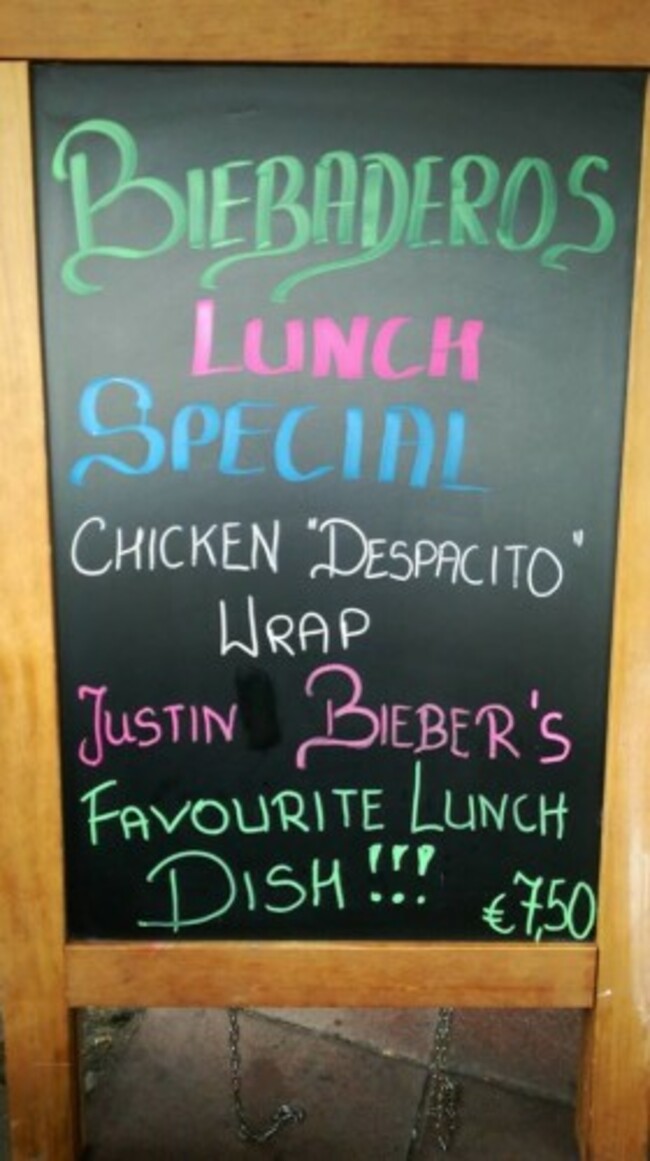 BIEBADEROS
LUNCH
SPECIAL
CHICKEN "DESPACITO"
WRAP
JUSTIN BIEBER'S
FAVOURITE LUNCH
DISH!!!
€7,50